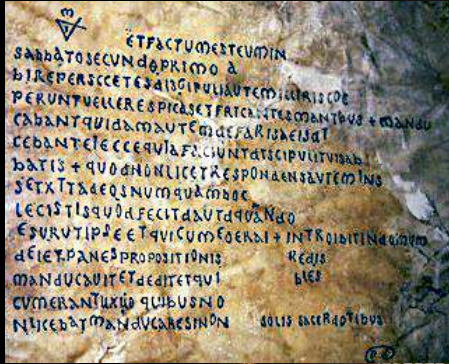 ETFACTUMESTEUMIN
SABBATOSECUNDOPRIMO A
BIREPERSCCETESDISGIPULIAUTEMILLIRISCOE
PERUNTUELLERESPICASETFRICANTESMANTBUS + MANDU
CABANTQUIDAMAUTEMDEFARISAEISDT
CEBANTEIECCEQUIAFACIUNTDTSCIPULITUISAB
BATIS + QUODNONLICETRESPONDENSAUTEMINS
SETXTTADEOSNUMQUAMHOC
LECISTISQUODFECITDAUTDQUANDO
ESURUTIPSEETQUICUMEOERAI + INTROIBITINDOMUM
DEIETPANESPROPOSITIONIS REDIS
MANDUCAUITETDEDITETQUI BLES
CUMERANTUXUO QUIBUSNO
NLICEBATMANDUCARESINON SOLIS SACERDOTIBUS